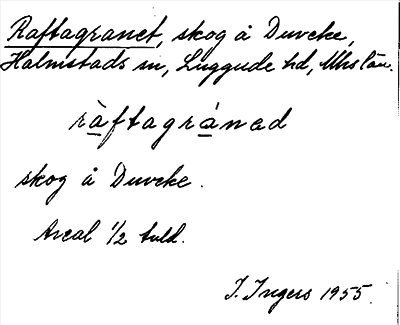 Raftagranet, skog å Duveke,
Halmstads sn, Luggude hd, Mhs län.
ràftagránad
skog å Duveke.
Areal 1/2 tnld.
I. Ingers 1955